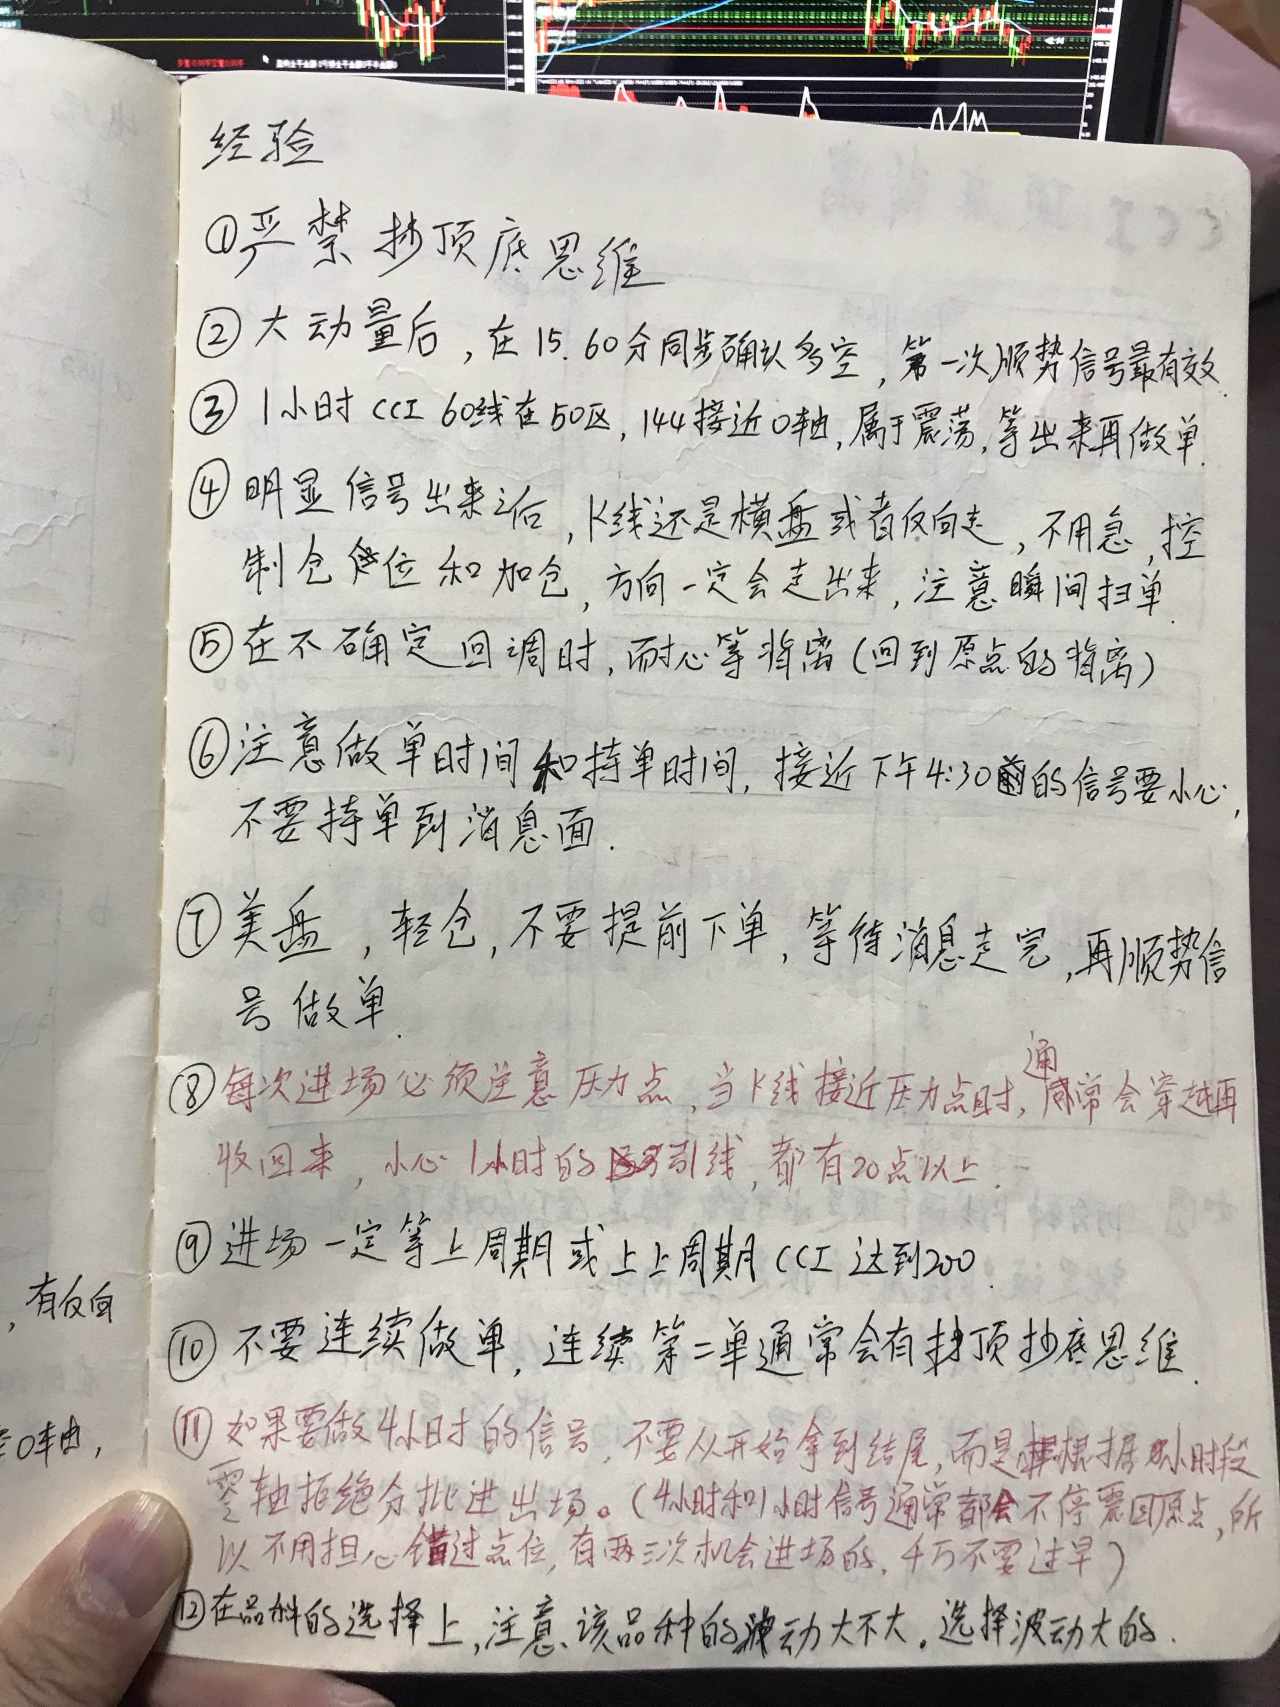 经验
①严禁抄顶底思维
②大动量后，在15.60分同步确认多空，第一次顺势信号最有效
③1小时CCI 60线在50区，144接近0轴，属于震荡，等出来再做单.
④明显信号出来之后，K线还是横盘或者反向走，不用急，控
制仓位和加仓，方向一定会走出来，注意瞬间扫单
⑤在不确定回调时，耐心等背离（回到原点的背离）
⑥注意做单时间和持单时间，接近下午4:30前的信号要小心，
不要持单到消息面.
⑦美盘，轻仓，不要提前下单，等待消息走完，再顺势信
号做单.
⑧每次进场必须注意压力点，当K线接近压力点时，通常会穿越再
收回来，小心1小时的引线，都有20点以上.
⑨进场一定等上周期或上上周期CCI达到200.
⑩不要连续做单，连续第二单通常会有抄顶抄底思维.
⑪如果要做4小时的信号，不要从开始拿到结尾，而是根据小时段
零轴拒绝分批进出场。（4小时和1小时信号通常都会不停震回原点，所
以不用担心错过点位，有两三次机会进场的，千万不要过早）
⑫在品种的选择上，注意该品种的波动大不大。选择波动大的.
，有反向
0轴，